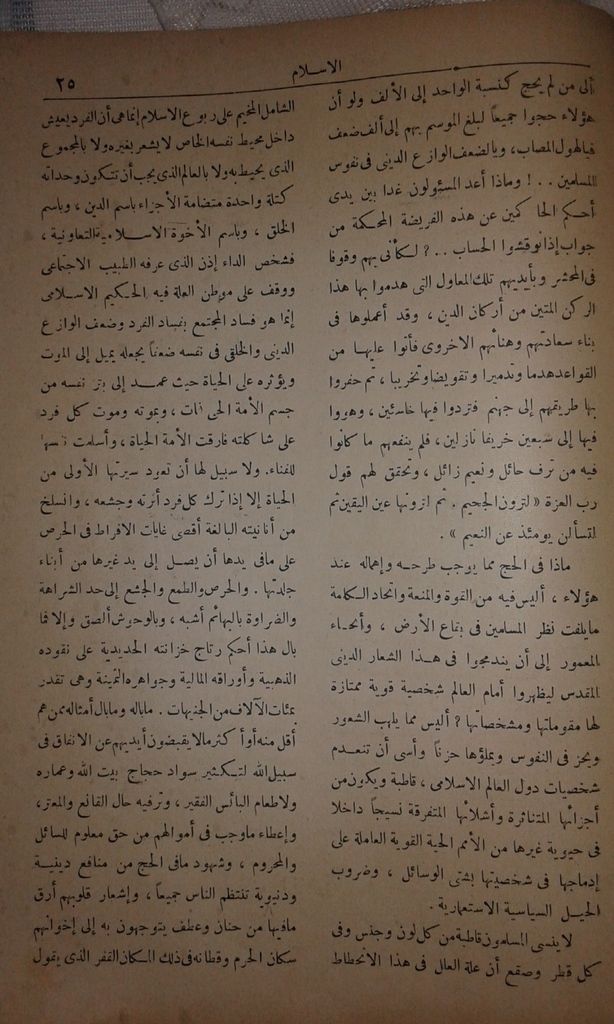 الاسلام
٢٥
إلى من لم يحج كنسبة الواحد إلى الألف ولو أن
هؤلاء حجوا جميعاً لبلغ الموسم بهم إلى ألف ضعف
فيالهول المصاب، ويالضعف الوازع الدينى فى نفوس
المسلمين . . ! وماذا أعد المسئولون غدا بين يدى
أحكم الحاكمين عن هذه الفريضة المحكمة من
جواب إذا نوقشوا الحساب . . ؟ لكأنى بهم وقوفا
فى المحشر وبأيديهم تلك المعاول التى هدموا بها هذا
الركن المتين من أركان الدين ، وقد أعملوها فى
بناء سعادتهم وهنائهم الاخروى فأتوا عليها من
القواعد هدما وتدميرا وتقويضا وتخريبا ، ثم حفروا
بها طريقهم إلى جهنم فتردوا فيها خاسئين ، وهووا
فيها إلى سبعين خريفا نازلين ، فلم ينفعهم ما كانوا
فيه من ترف حائل ونعيم زائل ، وتحقق لهم قول
رب العزة « لترون الجحيم . ثم لترونها عين اليقين ثم
لتسألن يومئذ عن النعيم » .
ماذا فى الحج مما يوجب طرحه وإهماله عند
هؤلاء ، أليس فيه من القوة والمنعة واتحاد الكلمة
ما يلفت نظر المسلمين فى بقاع الأرض ، وأنحاء
المعمور إلى أن يندمجوا فى هذا الشعار الدينى
المقدس ليظهروا أمام العالم شخصية قوية ممتازة
لها مقوماتها ومشخصاتها ؟ أليس مما يلهب الشعور
ويحز فى النفوس ويملؤها حزناً وأسى أن تنعدم
شخصيات دول العالم الاسلامى ، قاطبة ويكون من
أجزائها المتناثرة وأشلائها المتفرقة نسيجاً داخلا
فى حيوية غيرها من الأمم الحية القوية العاملة على
إدماجها فى شخصيتها بشتى الوسائل ، وضروب
الحيل السياسية الاستعمارية .
لا ينسى المسلمون قاطبة من كل لون وجنس وفى
كل قطر وصقع أن علة العلل فى هذا الانحطاط
الشامل المخيم على ربوع الاسلام إنما هى أن الفرد يعيش
داخل محيط نفسه الخاص لا يشعر بغيره ولا بالمجموع
الذى يحيط به ولا بالعالم الذى يجب أن تتكون وحداته
كتلة واحدة متضامة الأجزاء باسم الدين ، وباسم
الخلق ، وباسم الأخوة الاسلامية التعاونية ،
فشخص الداء إذن الذى عرفه الطبيب الاجتماعى
ووقف على موطن العلة فيه الحكيم الاسلامى
إنما هو فساد المجتمع بفساد الفرد وضعف الوازع
الدينى والخلقى فى نفسه ضعفاً يجعله يميل إلى الموت
ويؤثره على الحياة حيث عمد إلى بتر نفسه من
جسم الأمة الحى فمات ، وبموته وموت كل فرد
على شاكلته فارقت الأمة الحياة ، وأسلمت نفسها
للفناء . ولا سبيل لها أن تعود سيرتها الأولى من
الحياة إلا إذا ترك كل فرد أثرته وجشعه ، وانسلخ
من أنانيته البالغة أقصى غايات الافراط فى الحرص
على ما فى يدها أن يصل إلى يد غيرها من أبناء
جلدتها . والحرص والطمع والجشع إلى حد الشراهة
والضراوة بالبهائم أشبه ، وبالوحوش ألصق وإلا فما
بال هذا أحكم رتاج خزانته الحديدية على نقوده
الذهبية وأوراقه المالية وجواهره الثمينة وهى تقدر
بمئات الآلاف من الجنيهات . ماباله وما بال أمثاله ممن هم
أقل منه أو أكثر مالا يقبضون أيديهم عن الانفاق فى
سبيل الله لتكثير سواد حجاج بيت الله وعماره
ولاطعام البائس الفقير ، وترفيه حال القانع والمعتر،
وإعطاء ما وجب فى أموالهم من حق معلوم للسائل
والمحروم ، وشهود ما فى الحج من منافع دينية
ودنيوية تنتظم الناس جميعاً ، وإشعار قلوبهم أرق
مافيها من حنان وعطف يتوجهون به إلى إخوانهم
سكان الحرم وقطانه فى ذلك المكان القفر الذى يقول